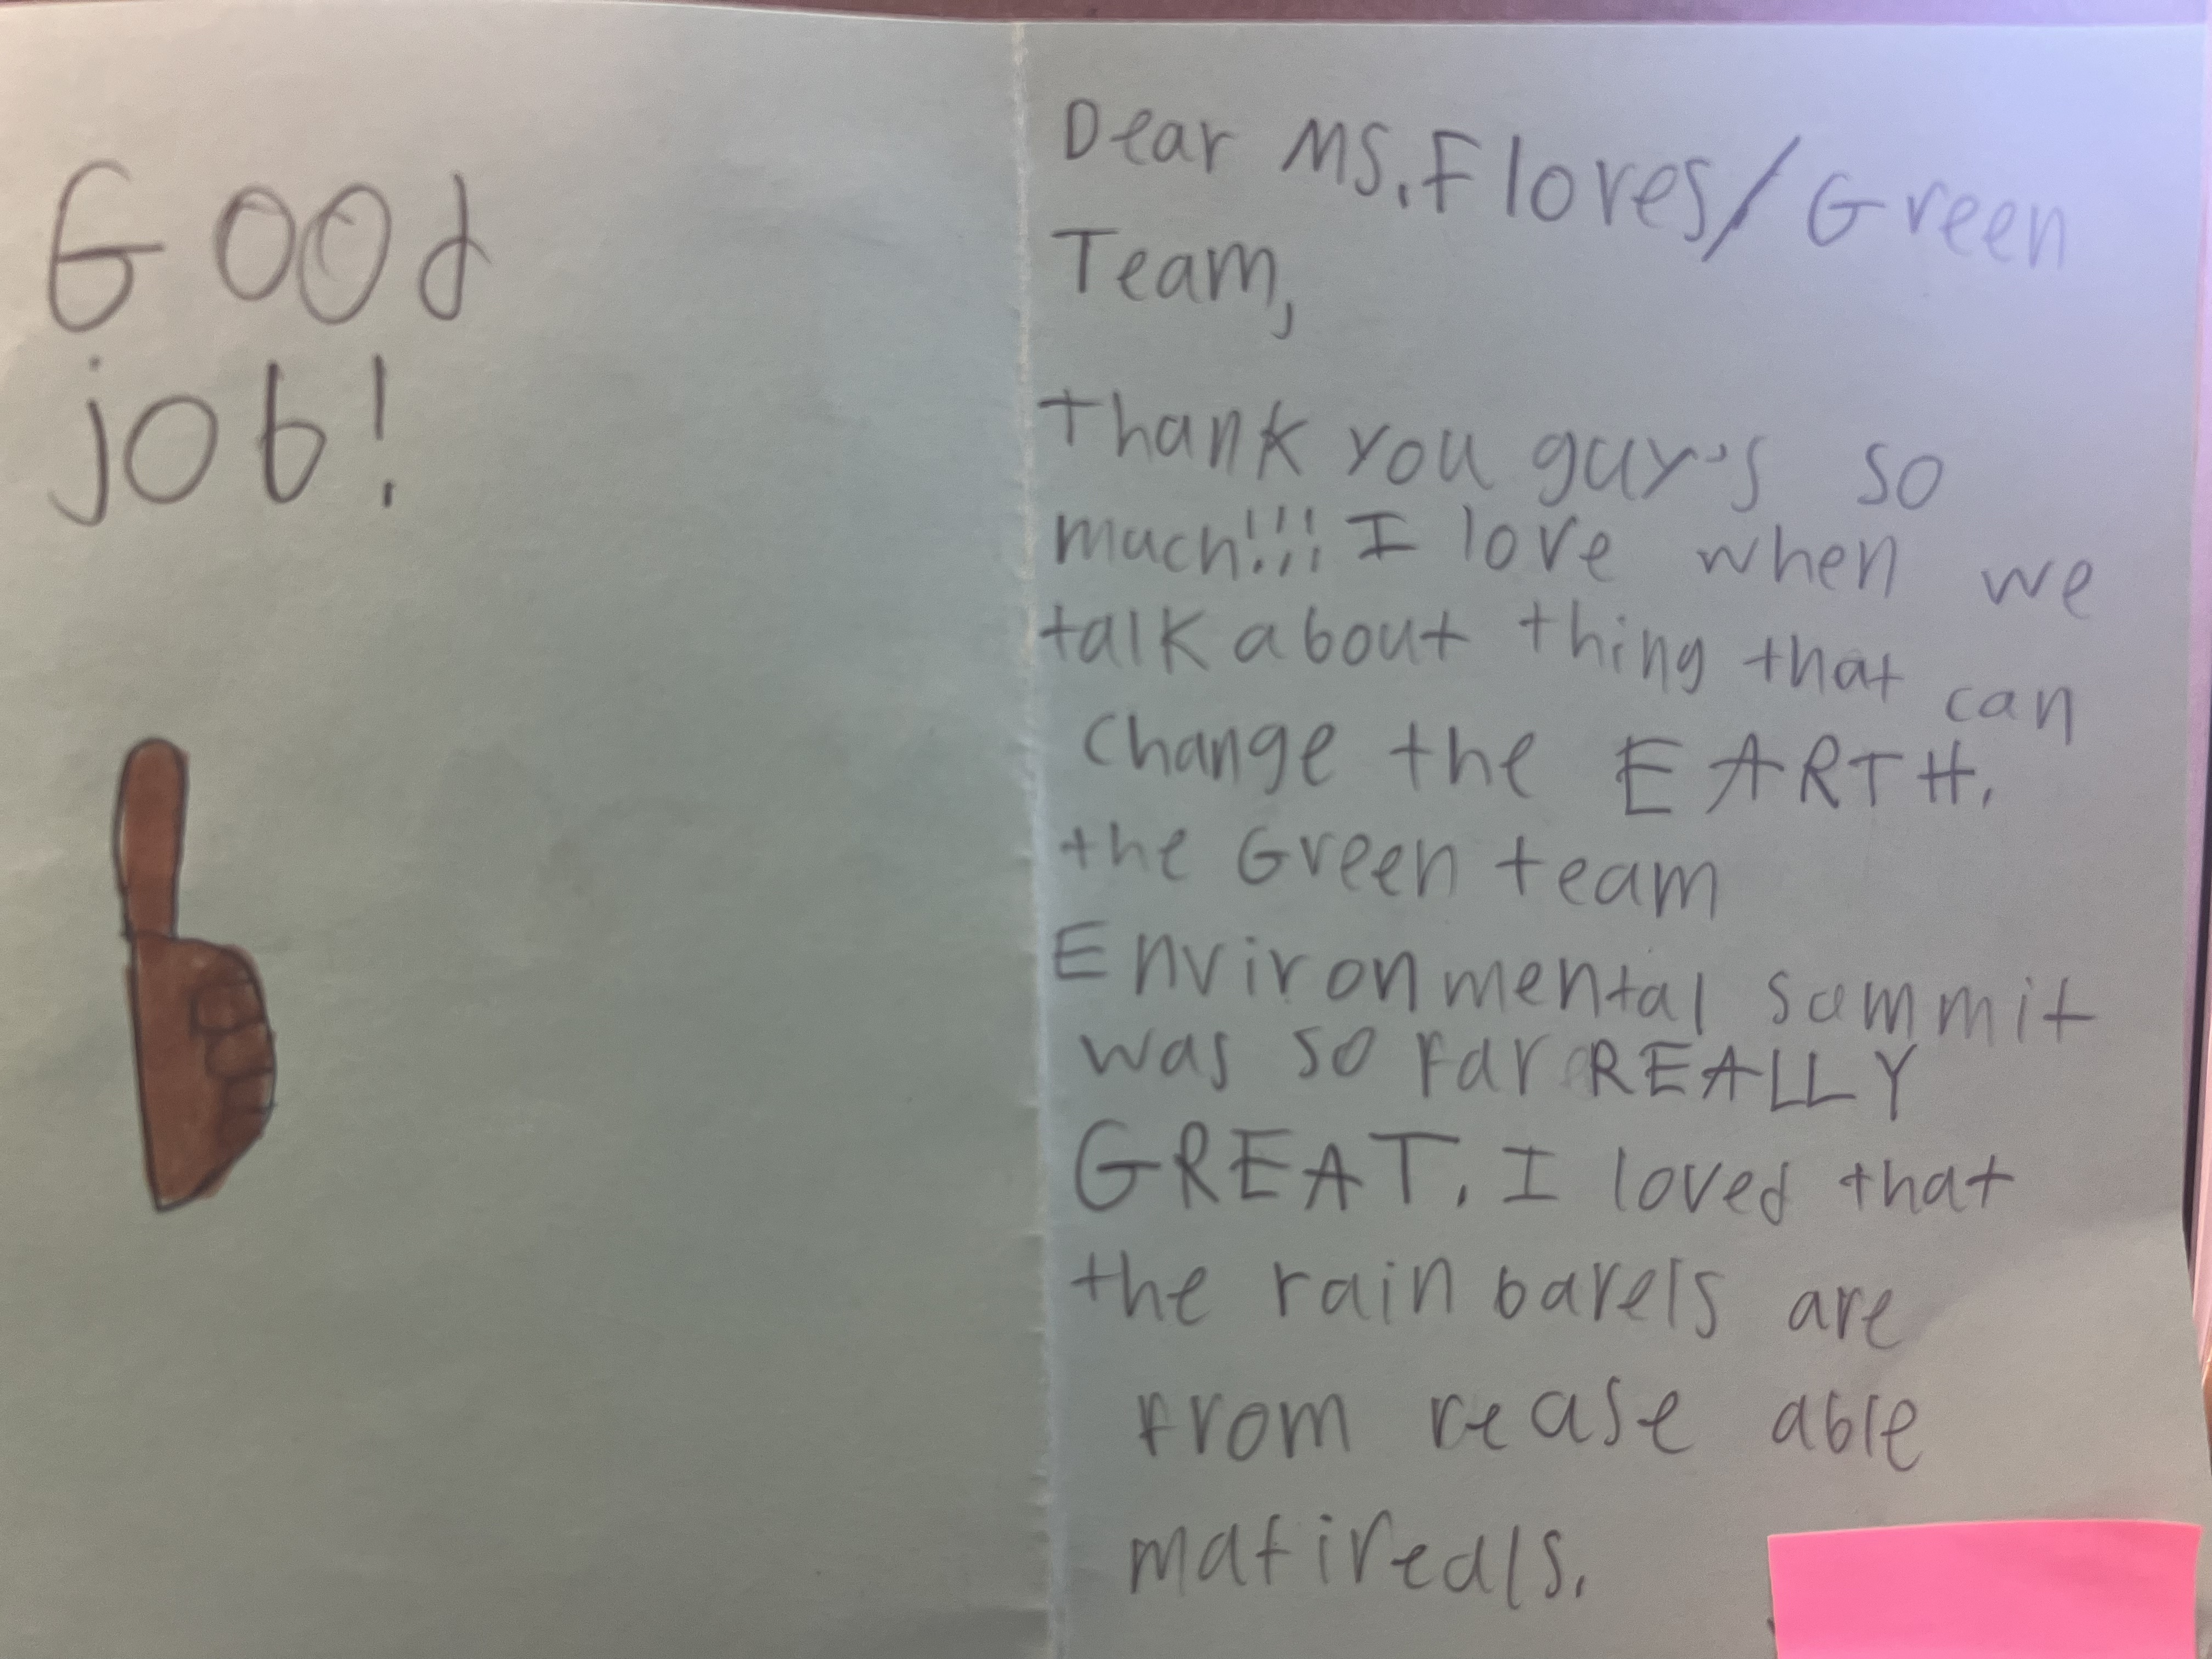 Good
job!
Dear Ms. Flores/Green
Team,
Thank you guy's so
much!!! I love when we
talk about thing that can
change the EARTH.
the Green team
Environmental summit
was so far REALLY
GREAT. I loved that
the rain barels are
from rease able
matireals.